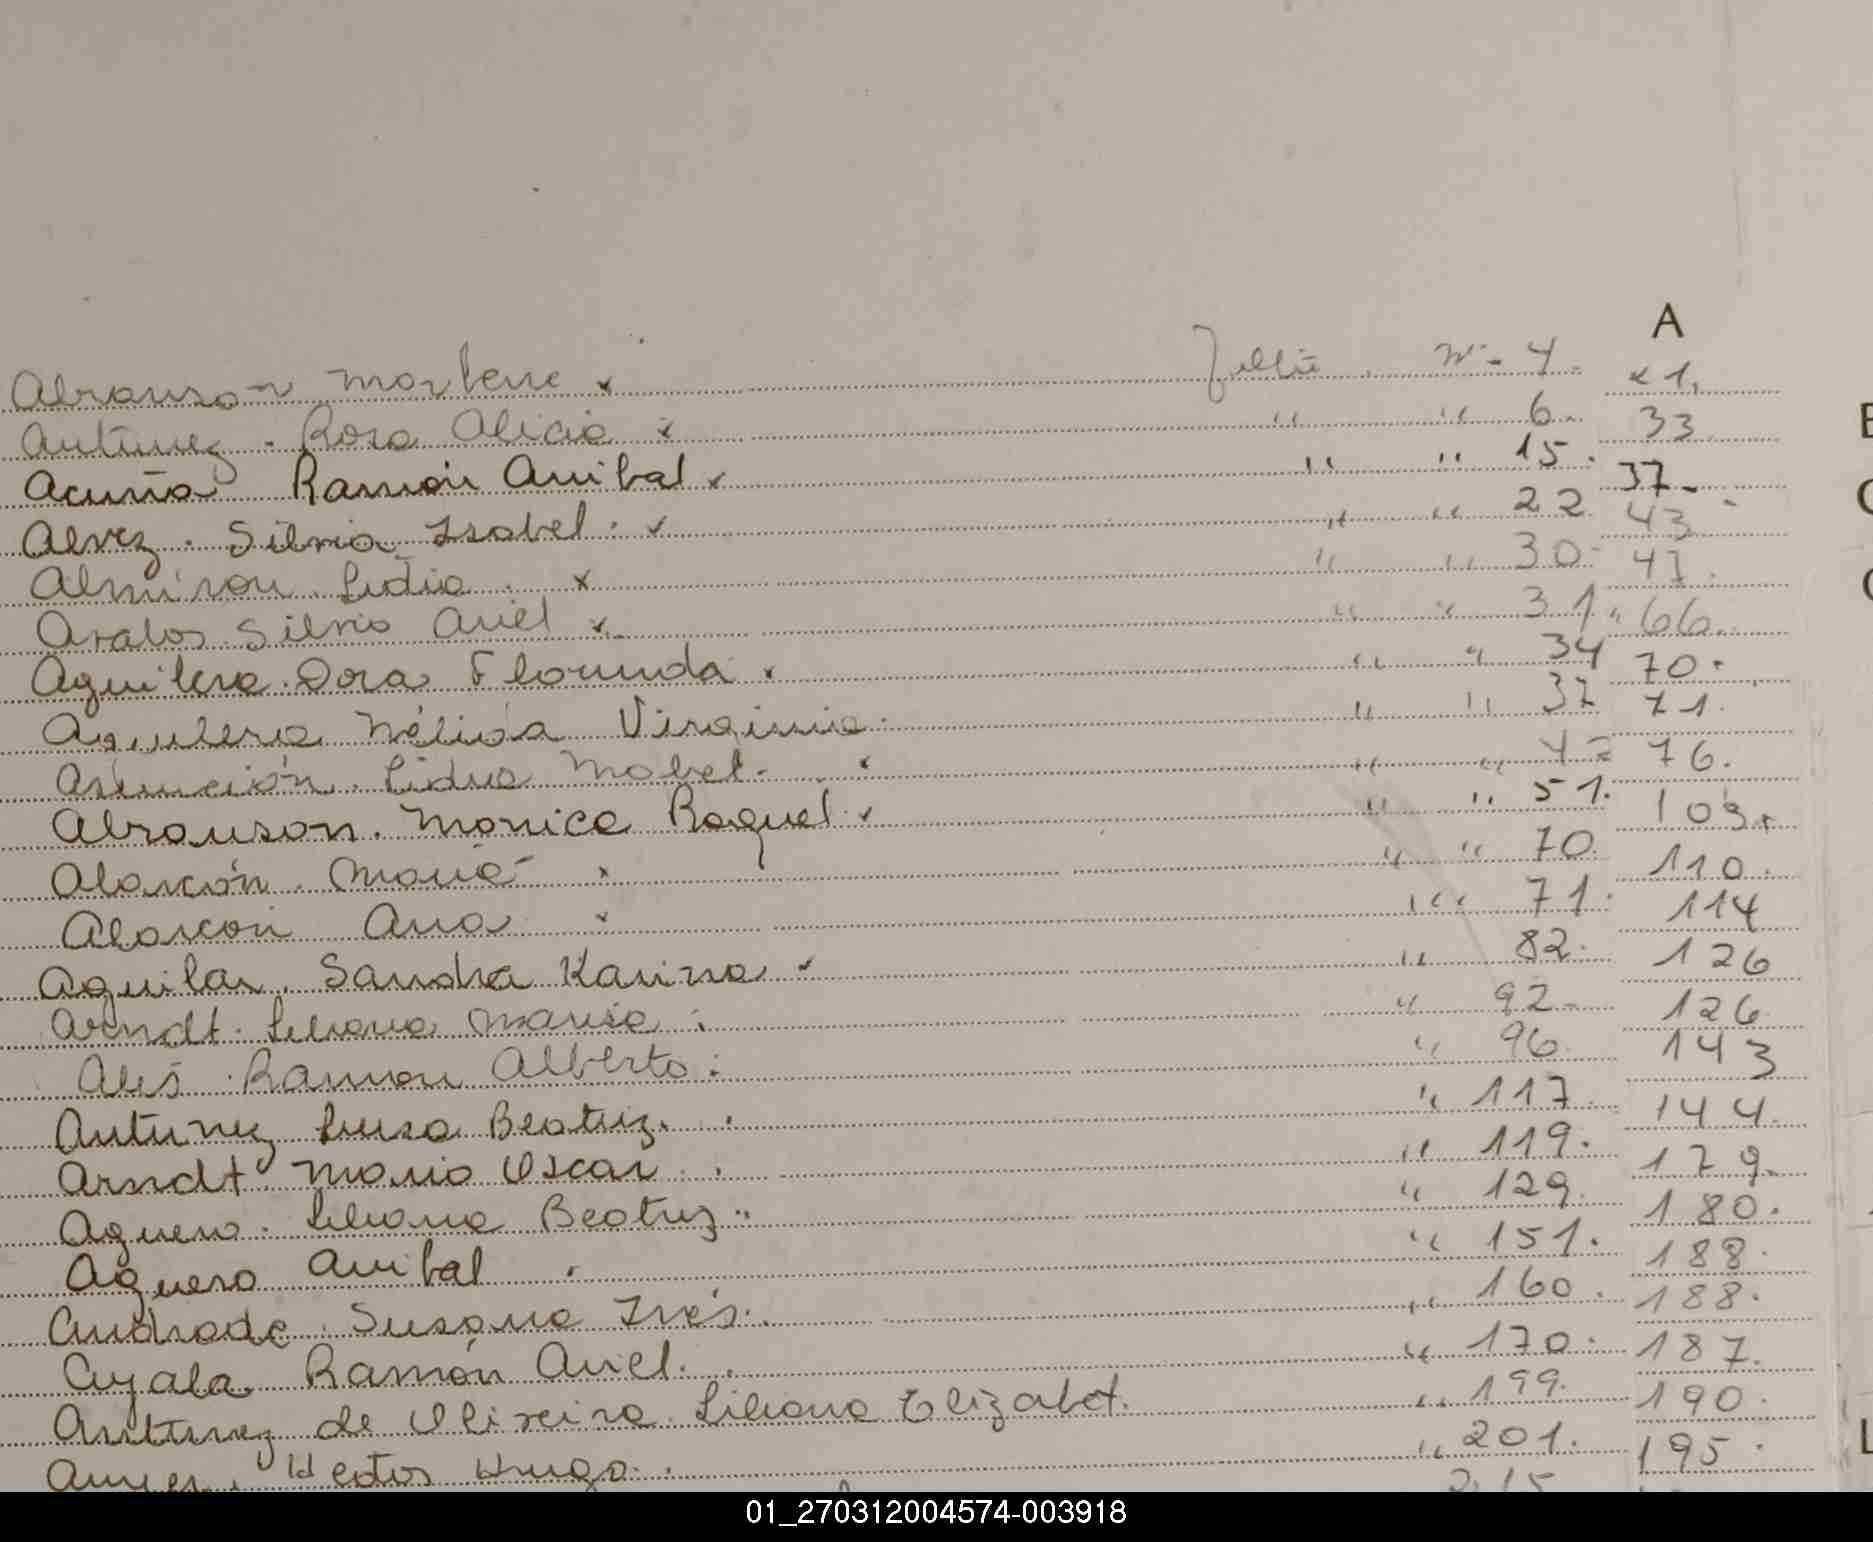 A
Abramson Marlene x Folio Nº - 4. 21.
Antunez. Rosa Alicia x " " 6. 33
Acuña Ramón Anibal x " " 15. 37.
Alvez. Silvia Isabel. x " " 22 43
Almirón. Lidia. x " " 30. 47.
Avalos Silvio Ariel x " " 31. 66.
Aguilera. Dora Florinda. x " " 34 70.
Aguilera Nélida Virginia. " " 37 71.
Asunción. Lidia Mabel. " " 76.
Abramson. Monica Raquel x " " 51. 103.
Alarcón. María x " " 70. 110.
Alarcón Ana x " 71. 114
Aguilar. Sandra Karina x " 82. 126
Arndt. Liliana Maria : " 92. 126
Ramon Alberto : " 96. 143
Antunez Luisa Beatriz. " 117. 144.
Arndt Mario Oscar. " 119. 179.
Aguero. Liliana Beatriz.. " 129. 180.
Aguero Anibal " 151. 188.
Andrade. Susana Inés. " 160. 188.
Ayala Ramón Ariel. " 170. 187.
Antunez de Oliveira Liliana Elizabet. " 199. 190.
Hugo. " 201. 195.
215
E
L
01_270312004574-003918